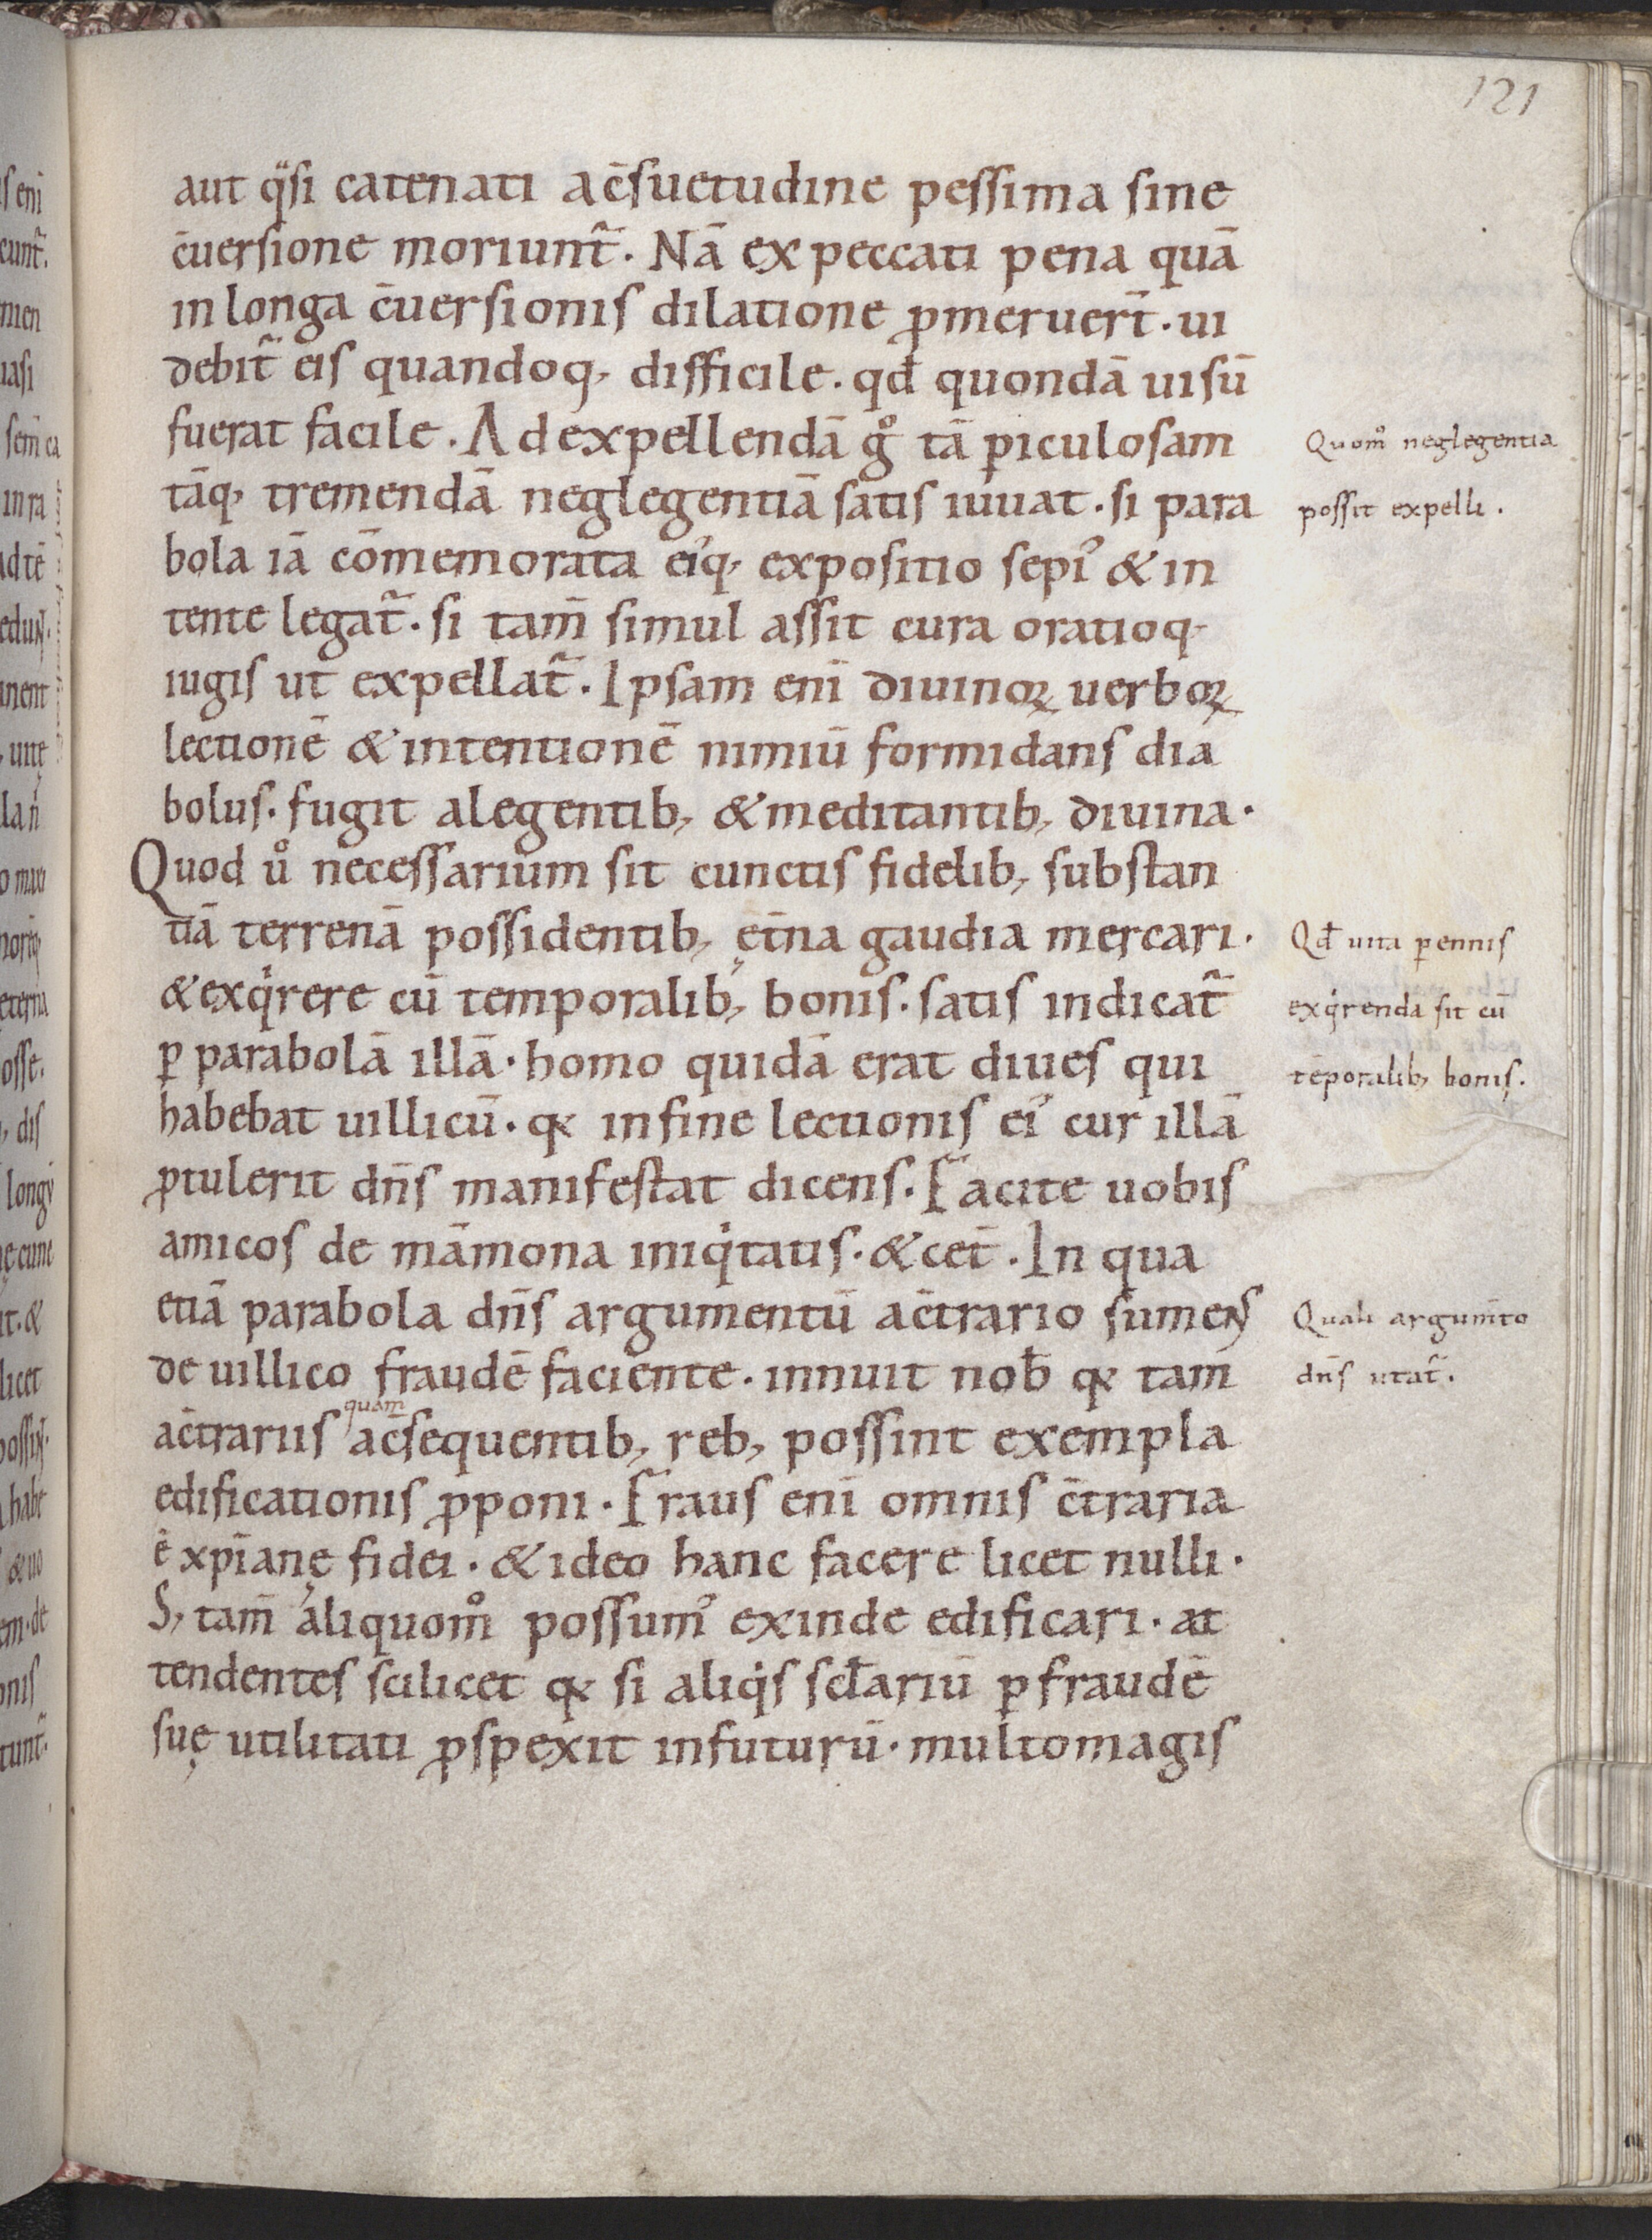 121
aut q̈si catenati ac̄suetudine pessima sine
c̄uersione moriunt̄. Nā ex peccati pena quā
in longa c̄uersionis dilatione ꝓmeruer̄t. ui
debit̄ eis quandoq, difficile. qđ quondā uisū
fuerat facile. Ad expellendā gͦ tā ꝑiculosam
tāq, tremendā neglegentiā satis iuuat. si para
bola iā cōmemorata ei᾽q, expositio sepi᾽ & in
tente legat̄. si tam̄ simul assit cura oratioq,
iugis ut expellat̄. Ipsam enī diuinoꝝ uerboꝝ
lectionē & intentionē nimiū formidans dia
bolus. fugit a legentib, & meditantib, diuina.
Quod uͦ necessarium sit cunctis fidelib, substan
tiā terrenā possidentib, ęt̄na gaudia mercari.
& exqͥrere cū temporalib, bonis. satis indicat̄
ꝑ parabolā illā. homo quidā erat diues qui
habebat uillicū. qꝫ in fine lectionis ei᾽ cur illā
ꝓtulerit dn̄s manifestat dicens. Facite uobis
amicos de māmona iniqͥtatis. & cet̄. In qua
etiā parabola dn̄s argumentū ac̄trario sumens
de uillico fraudē faciente. innuit nob̄ qꝫ tam̄
ac̄trariis quam ac̄sequentib, reb, possint exempla
edificationis ꝓponi. Fraus enī omnis c̄traria
ē xp̄ianę fidei. & ideo hanc facere licet nulli.
S, tam̄ aliquomͦ possum᾽ exinde edificari. at
tendentes scilicet qꝫ si aliqͥs scl̄ariū ꝑ fraudē
suę utilitati ꝓspexit in futurū. multo magis
Quomͦ neglegentia
possit expelli.
Qđ uita ꝑennis
exqͥrenda sit cū
tēporalib, bonis.
Quali argum̄to
dn̄s utat̄.